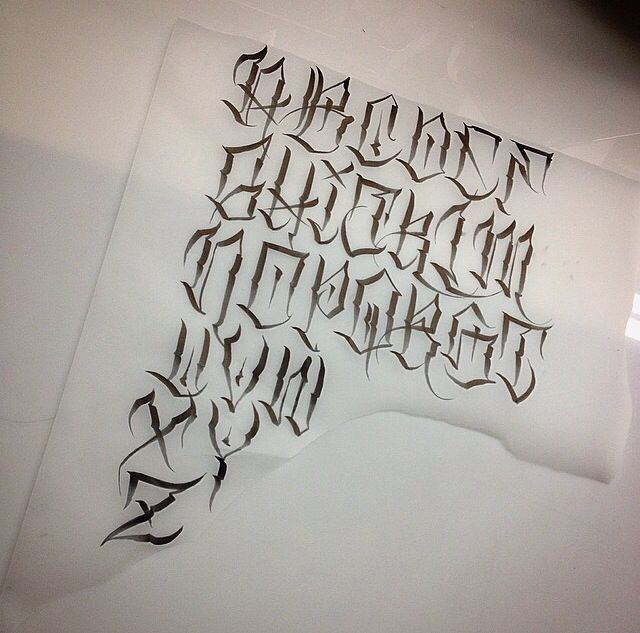 ABCDEF
GHIJKLM
NOPQRST
UVW
XY
Z